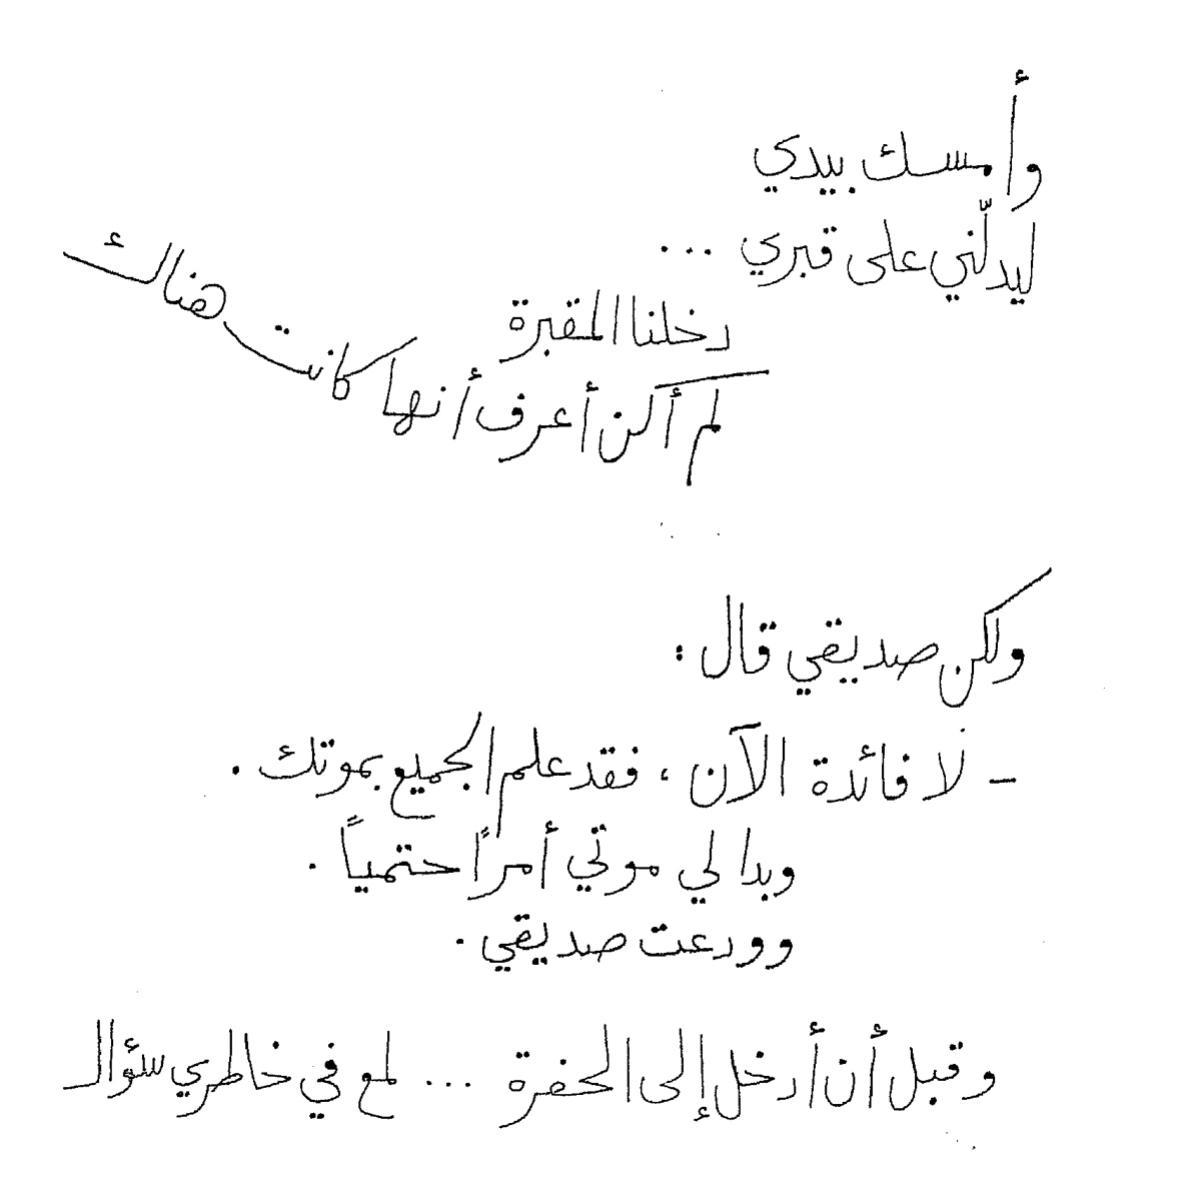 وأمسك بيدي
ليدلّني على قبري ...
دخلنا المقبرة
لم أكن أعرف أنها كانت هناك
ولكن صديقي قال :
- لا فائدة الآن ، فقد علم الجميع بموتك .
وبدا لي موتي أمراً حتمياً .
وودعت صديقي .
وقبل أن أدخل إلى الحفرة ... لمع في خاطري سؤال